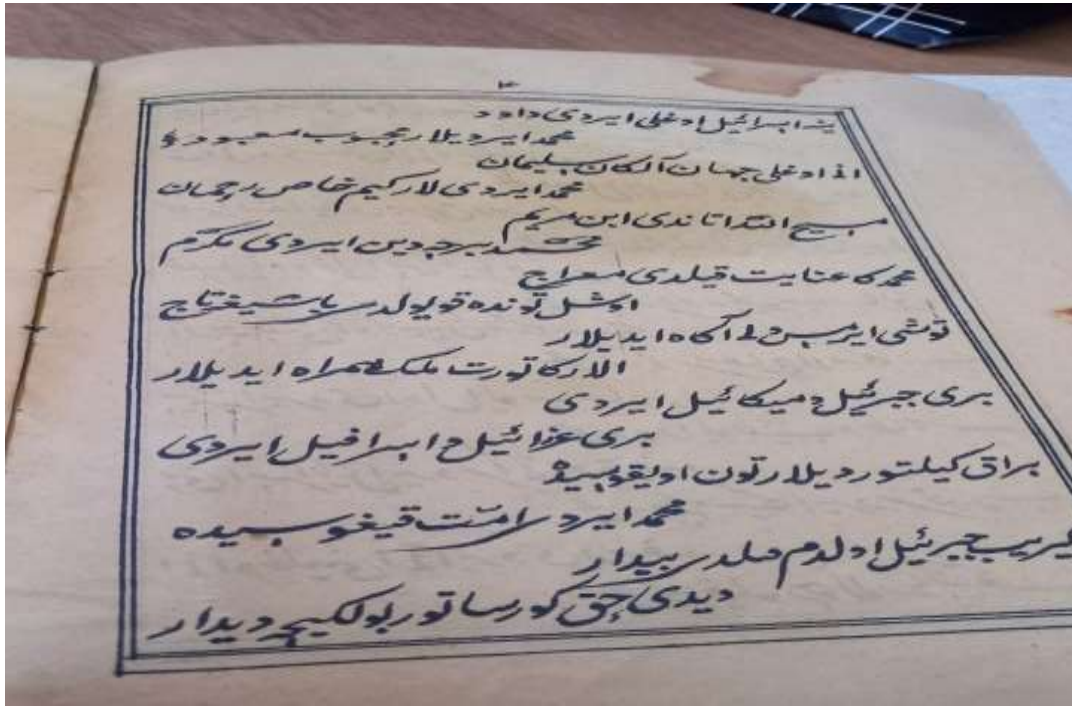 ۳
ینه اسرائیل اوغلی ایردی داود
محمد ایردیلار محبوب معبود
انذا اوغلی جهان آلکان سلیمان
محمد ایردی لار کیم خاص رحمان
مسیح ابن مریم
محمد برچه دین ایردی مکرم
محمد کا عنایت قیلدی معراج
اوشل تونده قویولدی باشیغه تاج
توشی ایرمس آگاه ایدیلار
الارکا تورت ملک همراه ایدیلار
بری جبرئیل و میکائیل ایردی
بری عزرائیل و اسرافیل ایردی
براق کیلتوردیلار تون اویقوسیده
محمد ایردی امت قیغوسیده
کریب جبرئیل اولدم قیلدی بیدار
دیدی حق کورساتور بو کیچه دیدار